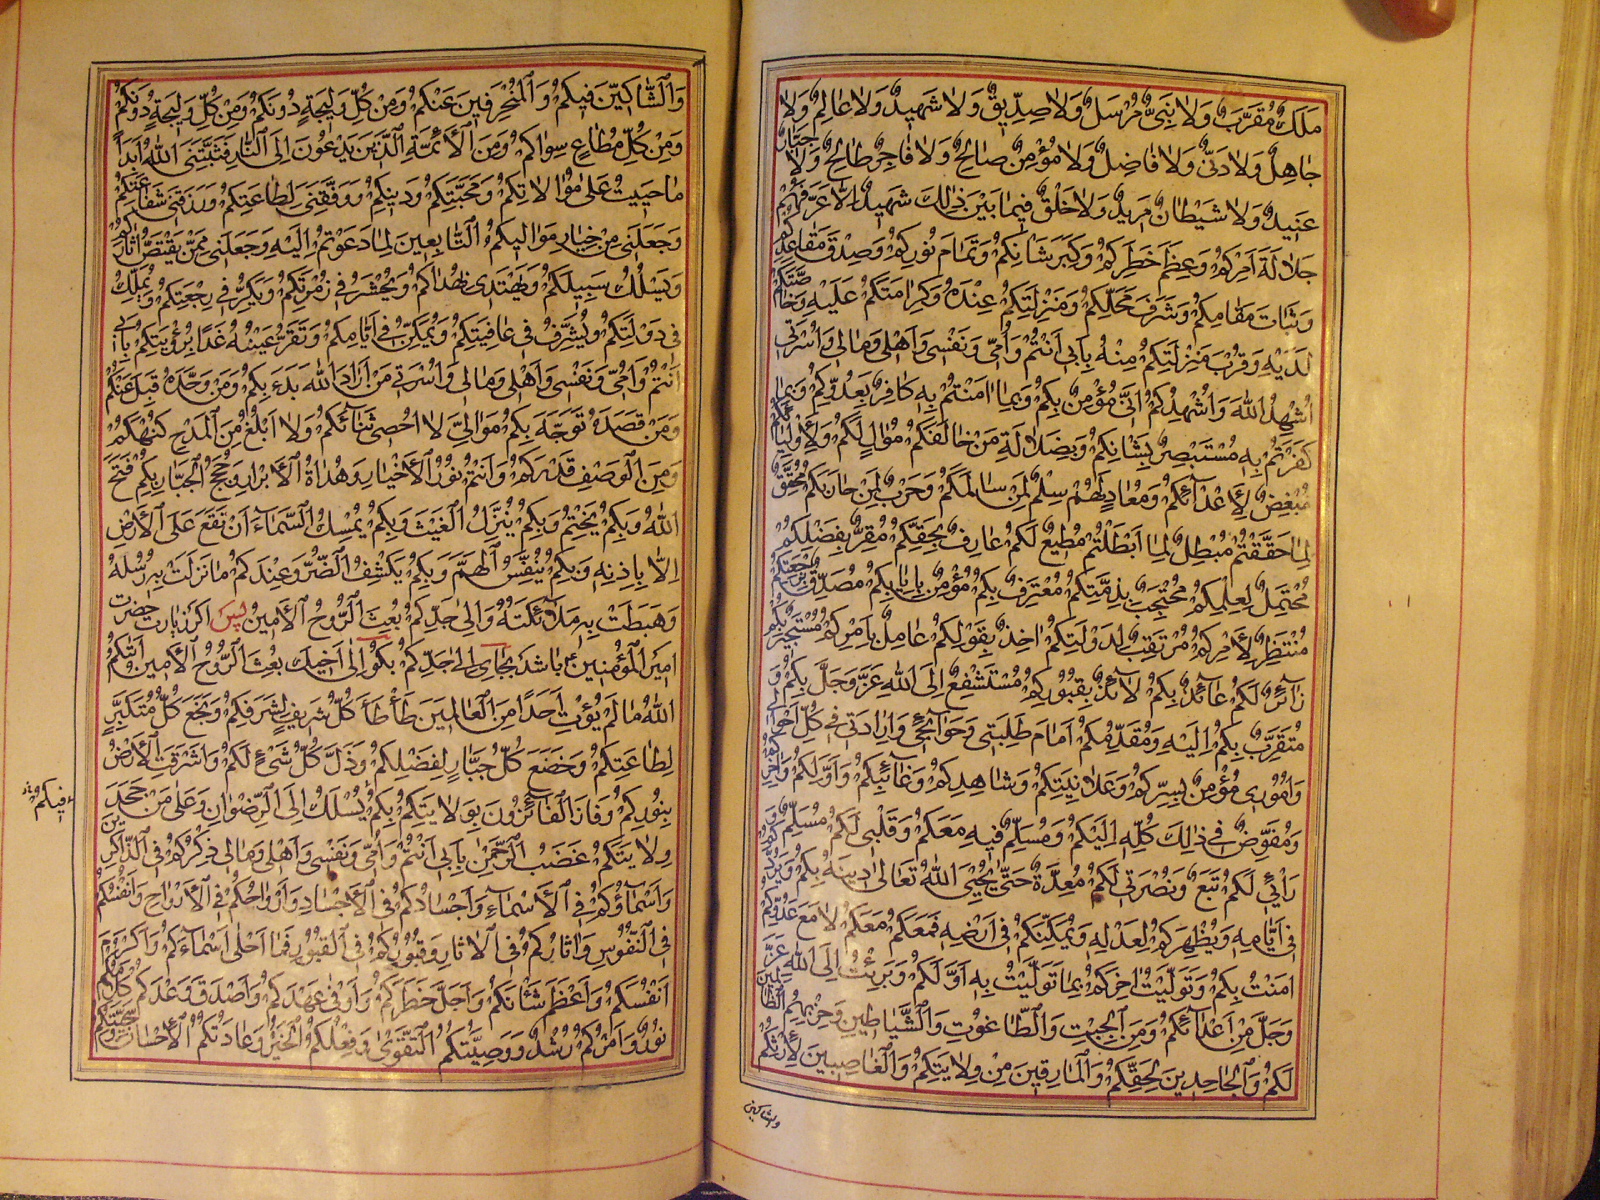 مَلَكٌ مُقَرَّبٌ وَلَا نَبِىٌّ مُرْسَلٌ وَلَا صِدِّيقٌ وَلَا شَهِيدٌ وَلَا عَالِمٌ وَلَا
جَاهِلٌ وَلَا دَنِىٌّ وَلَا فَاضِلٌ وَلَا مُؤْمِنٌ صَالِحٌ وَلَا فَاجِرٌ طَالِحٌ وَلَا جَبَّارٌ
عَنِيدٌ وَلَا شَيْطَانٌ مَرِيدٌ وَلَا خَلْقٌ فِيمَا بَيْنَ ذٰلِكَ شَهِيدٌ اِلَّا عَرَّفَهُمْ
جَلَالَةَ اَمْرِكُمْ وَعِظَمَ خَطَرِكُمْ وَكِبَرَ شَاْنِكُمْ وَتَمَامَ نُورِكُمْ وَصِدْقَ مَقَاعِدِكُمْ
وَثَبَاتَ مَقَامِكُمْ وَشَرَفَ مَحَلِّكُمْ وَمَنْزِلَتِكُمْ عِنْدَهُ وَكَرَامَتَكُمْ عَلَيْهِ وَخَاصَّتَكُمْ
لَدَيْهِ وَقُرْبَ مَنْزِلَتِكُمْ مِنْهُ بِاَبِى اَنْتُمْ وَاُمِّى وَنَفْسِى وَاَهْلِى وَمَالِى وَاُسْرَتِى
اُشْهِدُ اللّٰهَ وَاُشْهِدُكُمْ اَنِّى مُؤْمِنٌ بِكُمْ وَبِمَا اٰمَنْتُمْ بِهِ كَافِرٌ بِعَدُوِّكُمْ وَبِمَا
كَفَرْتُمْ بِهِ مُسْتَبْصِرٌ بِشَاْنِكُمْ وَبِضَلَالَةِ مَنْ خَالَفَكُمْ مُوَالٍ لَكُمْ وَلِاَوْلِيَائِكُمْ
مُبْغِضٌ لِاَعْدَآئِكُمْ وَمُعَادٍ لَهُمْ سِلْمٌ لِمَنْ سَالَمَكُمْ وَحَرْبٌ لِمَنْ حَارَبَكُمْ مُحَقِّقٌ
لِمَا حَقَّقْتُمْ مُبْطِلٌ لِمَا اَبْطَلْتُمْ مُطِيعٌ لَكُمْ عَارِفٌ بِحَقِّكُمْ مُقِرٌّ بِفَضْلِكُمْ
مُحْتَمِلٌ لِعِلْمِكُمْ مُحْتَجِبٌ بِذِمَّتِكُمْ مُعْتَرِفٌ بِكُمْ مُؤْمِنٌ بِاِيَابِكُمْ مُصَدِّقٌ بِرَجْعَتِكُمْ
مُنْتَظِرٌ لِاَمْرِكُمْ مُرْتَقِبٌ لِدَوْلَتِكُمْ اٰخِذٌ بِقَوْلِكُمْ عَامِلٌ بِاَمْرِكُمْ مُسْتَجِيرٌ بِكُمْ
زَآئِرٌ لَكُمْ عَآئِذٌ بِكُمْ لَآئِذٌ بِقُبُورِكُمْ مُسْتَشْفِعٌ اِلَى اللّٰهِ عَزَّ وَجَلَّ بِكُمْ وَ
مُتَقَرِّبٌ بِكُمْ اِلَيْهِ وَمُقَدِّمُكُمْ اَمَامَ طَلِبَتِى وَحَوَآئِجِى وَاِرَادَتِى فِى كُلِّ اَحْوَالِى
وَاُمُورِى مُؤْمِنٌ بِسِرِّكُمْ وَعَلَانِيَتِكُمْ وَشَاهِدِكُمْ وَغَآئِبِكُمْ وَاَوَّلِكُمْ وَاٰخِرِكُمْ
وَمُفَوِّضٌ فِى ذٰلِكَ كُلِّهِ اِلَيْكُمْ وَمُسَلِّمٌ فِيهِ مَعَكُمْ وَقَلْبِى لَكُمْ مُسَلِّمٌ وَ
رَاْيِى لَكُمْ تَبَعٌ وَنُصْرَتِى لَكُمْ مُعَدَّةٌ حَتّٰى يُحْيِىَ اللّٰهُ تَعَالٰى دِينَهُ بِكُمْ وَيَرُدَّكُمْ
فِى اَيَّامِهِ وَيُظْهِرَكُمْ لِعَدْلِهِ وَيُمَكِّنَكُمْ فِى اَرْضِهِ فَمَعَكُمْ مَعَكُمْ لَا مَعَ عَدُوِّكُمْ
اٰمَنْتُ بِكُمْ وَتَوَلَّيْتُ اٰخِرَكُمْ بِمَا تَوَلَّيْتُ بِهِ اَوَّلَكُمْ وَبَرِئْتُ اِلَى اللّٰهِ عَزَّ
وَجَلَّ مِنْ اَعْدَآئِكُمْ وَمِنَ الْجِبْتِ وَالطَّاغُوتِ وَالشَّيَاطِينِ وَحِزْبِهِمُ الظَّالِمِينَ
لَكُمْ وَالْجَاحِدِينَ لِحَقِّكُمْ وَالْمَارِقِينَ مِنْ وِلَايَتِكُمْ وَالْغَاصِبِينَ لِاِرْثِكُمْ
والشاكين
وَالشَّاكِّينَ فِيكُمْ وَالْمُنْحَرِفِينَ عَنْكُمْ وَمِنْ كُلِّ وَلِيجَةٍ دُونَكُمْ وَمِنْ كُلِّ وَلِيجَةٍ دُونَكُمْ
وَمِنْ كُلِّ مُطَاعٍ سِوَاكُمْ وَمِنَ الْاَئِمَّةِ الَّذِينَ يَدْعُونَ اِلَى النَّارِ فَثَبَّتَنِىَ اللّٰهُ اَبَدًا
مَا حَيِيتُ عَلٰى مُوَالَاتِكُمْ وَمَحَبَّتِكُمْ وَدِينِكُمْ وَوَفَّقَنِى لِطَاعَتِكُمْ وَرَزَقَنِى شَفَاعَتَكُمْ
وَجَعَلَنِى مِنْ خِيَارِ مَوَالِيكُمُ التَّابِعِينَ لِمَا دَعَوْتُمْ اِلَيْهِ وَجَعَلَنِى مِمَّنْ يَقْتَصُّ اٰثَارَكُمْ
وَيَسْلُكُ سَبِيلَكُمْ وَيَهْتَدِى بِهُدَاكُمْ وَيُحْشَرُ فِى زُمْرَتِكُمْ وَيَكِرُّ فِى رَجْعَتِكُمْ وَيُمَلَّكُ
فِى دَوْلَتِكُمْ وَيُشَرَّفُ فِى عَافِيَتِكُمْ وَيُمَكَّنُ فِى اَيَّامِكُمْ وَتَقَرُّ عَيْنُهُ غَدًا بِرُؤْيَتِكُمْ بِاَبِى
اَنْتُمْ وَاُمِّى وَنَفْسِى وَاَهْلِى وَمَالِى وَاُسْرَتِى مَنْ اَرَادَ اللّٰهَ بَدَءَ بِكُمْ وَمَنْ وَحَّدَهُ قَبِلَ عَنْكُمْ
وَمَنْ قَصَدَهُ تَوَجَّهَ بِكُمْ مَوَالِىَّ لَا اُحْصِى ثَنَائَكُمْ وَلَا اَبْلُغُ مِنَ الْمَدْحِ كُنْهَكُمْ
وَمِنَ الْوَصْفِ قَدْرَكُمْ وَاَنْتُمْ نُورُ الْاَخْيَارِ وَهُدَاةُ الْاَبْرَارِ وَحُجَجُ الْجَبَّارِ بِكُمْ فَتَحَ
اللّٰهُ وَبِكُمْ يَخْتِمُ وَبِكُمْ يُنَزِّلُ الْغَيْثَ وَبِكُمْ يُمْسِكُ السَّمَآءَ اَنْ تَقَعَ عَلَى الْاَرْضِ
اِلَّا بِاِذْنِهِ وَبِكُمْ يُنَفِّسُ الْهَمَّ وَبِكُمْ يَكْشِفُ الضُّرَّ وَعِنْدَكُمْ مَا نَزَلَتْ بِهِ رُسُلُهُ
وَهَبَطَتْ بِهِ مَلَآئِكَتُهُ وَاِلٰى جَدِّكُمْ بُعِثَ الرُّوحُ الْاَمِينُ پس اكر زيارت حضرت
امير المؤمنين ع باشد بجاى اِلٰى جَدِّكُمْ بكو اِلٰى اَخِيكَ بُعِثَ الرُّوحُ الْاَمِينُ اٰتَاكُمُ
اللّٰهُ مَا لَمْ يُؤْتِ اَحَدًا مِنَ الْعَالَمِينَ طَأْطَأَ كُلُّ شَرِيفٍ لِشَرَفِكُمْ وَبَخَعَ كُلُّ مُتَكَبِّرٍ
لِطَاعَتِكُمْ وَخَضَعَ كُلُّ جَبَّارٍ لِفَضْلِكُمْ وَذَلَّ كُلُّ شَىْءٍ لَكُمْ وَاَشْرَقَتِ الْاَرْضُ
بِنُورِكُمْ وَفَازَ الْفَآئِزُونَ بِوِلَايَتِكُمْ بِكُمْ يُسْلَكُ اِلَى الرِّضْوَانِ وَعَلٰى مَنْ جَحَدَ
وِلَايَتَكُمْ غَضَبُ الرَّحْمٰنِ بِاَبِى اَنْتُمْ وَاُمِّى وَنَفْسِى وَاَهْلِى وَمَالِى ذِكْرُكُمْ فِى الذَّاكِرِينَ
وَاَسْمَآؤُكُمْ فِى الْاَسْمَآءِ وَاَجْسَادُكُمْ فِى الْاَجْسَادِ وَاَرْوَاحُكُمْ فِى الْاَرْوَاحِ وَاَنْفُسُكُمْ
فِى النُّفُوسِ وَاٰثَارُكُمْ فِى الْاٰثَارِ وَقُبُورُكُمْ فِى الْقُبُورِ فَمَا اَحْلٰى اَسْمَآءَكُمْ وَاَكْرَمَ
اَنْفُسَكُمْ وَاَعْظَمَ شَاْنَكُمْ وَاَجَلَّ خَطَرَكُمْ وَاَوْفٰى عَهْدَكُمْ وَاَصْدَقَ وَعْدَكُمْ كَلَامُكُمْ
نُورٌ وَاَمْرُكُمْ رُشْدٌ وَوَصِيَّتُكُمُ التَّقْوٰى وَفِعْلُكُمُ الْخَيْرُ وَعَادَتُكُمُ الْاِحْسَانُ وَسَجِيَّتُكُمُ